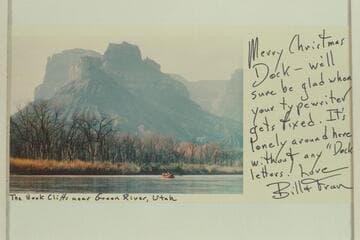 Merry Christmas
Dock – we'll
sure be glad when
your typewriter
gets fixed. It's
lonely around here
without any "Dock
letters! Love
Bill & Fran
The Book Cliffs near Green River, Utah